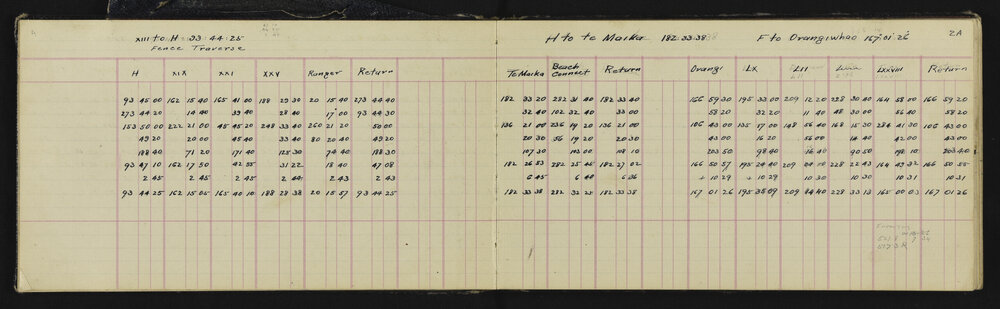 XIII to H 33-44-25
Fence Traverse
H to te Maika 182-33-38
F to Orangiwhao 167-01-26
2A
H XIX XXI XXV Ranger Return
Te Maika Beach Connect Return
Orangi LX LII LXXVIII Return
93 45 00 162 15 40 165 41 00 188 29 30 20 15 40 273 44 40
273 44 20 14 40 39 40 28 40 17 00 93 44 30
153 50 00 222 21 00 45 45 20 248 33 40 260 21 20 50 00
49 20 20 00 45 40 33 40 80 20 40 49 20
188 40 71 20 171 40 125 30 74 40 188 30
93 47 10 162 17 50 42 55 31 22 18 40 47 08
2 45 2 45 2 45 2 44 2 43 2 43
93 44 25 162 15 05 165 40 10 188 28 38 20 15 57 93 44 25
182 33 20 282 31 40 182 33 40
32 40 102 32 40 33 00
136 21 00 236 19 20 136 21 00
20 30 56 19 20 20 30
107 30 103 00 108 10
182 26 53 282 25 45 182 27 02
6 45 6 40 6 36
182 33 38 282 32 25 182 33 38
166 59 30 195 33 00 209 12 20 228 30 40 164 58 00 166 59 20
58 20 32 20 11 40 28 40 56 40 58 20
106 43 00 135 57 00 148 56 40 168 15 30 284 41 30 106 43 00
43 00 16 20 56 00 14 40 42 00 43 00
203 50 98 40 16 40 90 50 198 10 203 40
166 50 57 195 24 40 209 04 10 228 22 43 164 49 32 166 50 55
+ 10 29 + 10 29 10 30 10 30 10 31 10 31
167 01 26 195 35 09 209 14 40 228 33 13 165 00 03 167 01 26